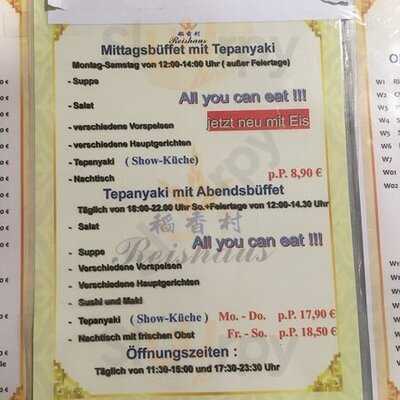 稻香村
Reishaus
Mittagsbüffet mit Tepanyaki
Montag-Samstag von 12:00-14:00 Uhr ( außer Feiertage)
- Suppe
All you can eat !!!
- Salat
jetzt neu mit Eis
- verschiedene Vorspeisen
- verschiedene Hauptgerichten
- Tepanyaki ( Show-Küche)
- Nachtisch p.P. 8,90 €
Tepanyaki mit Abendsbüffet
Täglich von 18:00-22.00 Uhr So.+Feiertage von 12:00-14.30 Uhr
- Salat
稻香村
All you can eat !!!
- Suppe
Reishaus
- Verschiedene Vorspeisen
- Verschiedene Hauptgerichten
- Sushi und Maki
- Tepanyaki ( Show-Küche ) Mo. - Do. p.P. 17,90 €
- Nachtisch mit frischen Obst Fr. - So. p.P. 18,50 €
Öffnungszeiten :
Täglich von 11:30-15:00 und 17:30-23:30 Uhr
W1
W2
W3
W4
W5
W6